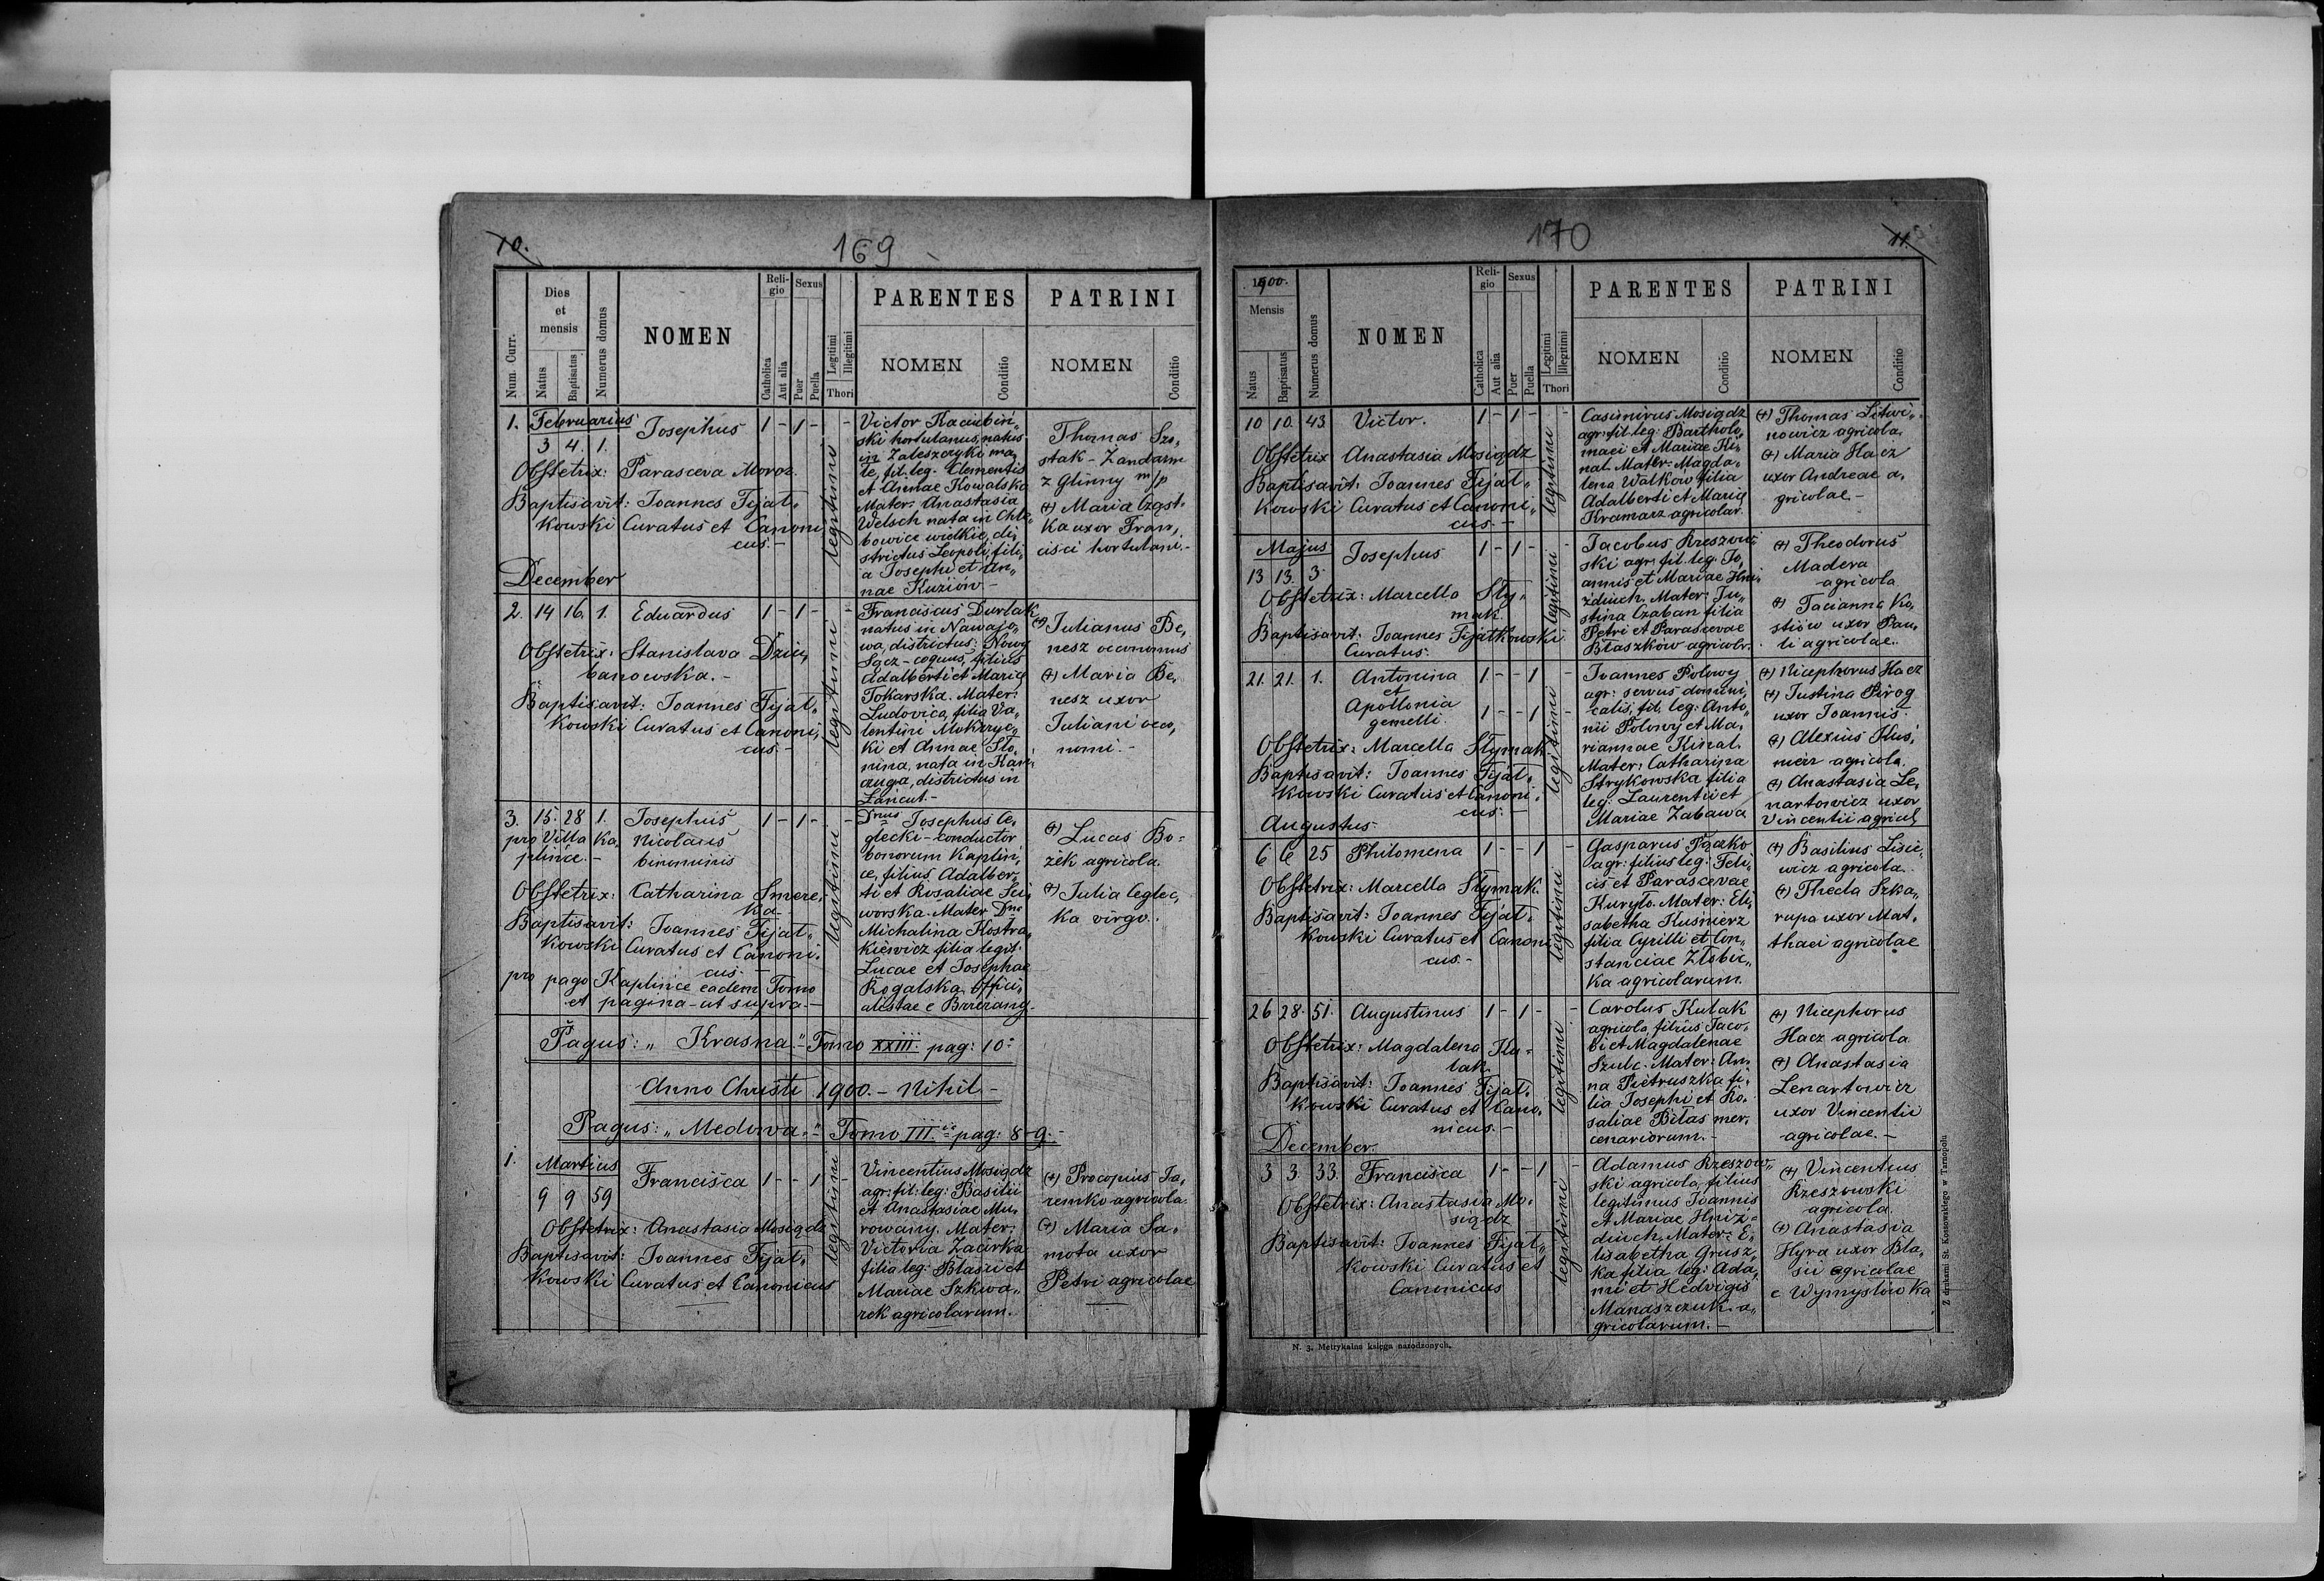 10.
169
Num. Curr.
Dies
et
mensis
Natus
Baptisatus
Numerus domus
NOMEN
Reli-
gio
Catholica
Aut alia
Sexus
Puer
Puella
Legitimi
Illegitimi
Thori
PARENTES
NOMEN
Conditio
PATRINI
NOMEN
Conditio
1. Februarius
3 4. 1.
Josephus 1 - 1 - -
Obstetrix: Parasceva Moroz.
Baptisavit: Joannes Fijał„
kowski Curatus et Canoni
cus.-
legitimi
Victor Kaciubiń„
ski hortulanus, natus
in Zaleszczyki ma„
łe, fil. leg. Clementis
et Annae Kowalska
Mater: Anastasia
Welsch nata in Chle„
bowice wielkie, di„
strictus Leopoli, fili„
a Josephi et An„
nae Kuziów -
Thomas Szo„
stak - Żandarm
z Glinny m/p
(+) Maria Cząst„
ka uxor Fran„
cisci hortulani.-
December
2. 14 16. 1. Eduardus 1 - 1 - -
Obstetrix: Stanislava Dziu„
banowska. -
Baptisavit: Joannes Fijał„
kowski Curatus et Canoni„
cus.-
legitimi
Franciscus Durlak
natus in Nawajo„
wa, districtus: Nowy
Sącz - coquus, filius
Adalberti et Mariae
Tokarska. Mater:
Ludovica, filia Va„
lentini Mokrzyc„
ki et Annae Sło„
nina, nata in Kań„
czuga, districtus in
Łańcut.-
(+) Julianus Be„
nesz oeconomus
(+) Maria Be„
nesz uxor
Juliani oeco„
nomi. -
3. 15. 28 1. Josephus 1 - 1 - -
pro Villa Ka„ Nicolaus
plińce. - binominis
Obstetrix: Catharina Smere„
ka -
Baptisavit: Joannes Fijał„
kowski Curatus et Canoni„
cus. -
pro pago Kaplińce eadem Tomo
et pagina - ut supra.-
legitimi
Dnus Josephus Ce„
glecki - conductor
bonorum Kapliń„
ce, filius Adalber„
ti et Rosaliae Sci„
worska. Mater Dna
Michalina Kostra„
kiewicz filia legit.
Lucae et Josephae
Rogalska offici„
alistae e Brzeżany.
(+) Lucas Bo=
żek agricola.
(+) Julia Ceglec„
ka virgo.
Pagus: „Krasna." - Tomo XXIII. pag: 10:
Anno Christi 1900. - Nihil -
Pagus: „Medowa." - Tomo III. pag: 8-9. -
1. Martius
9 9 59
Francisca 1 - - 1 -
Obstetrix: Anastasia Mosiądz
Baptisavit: Joannes Fijał„
kowski Curatus et Canonicus
legitimi
Vincentius Mosiądz
agr: fil: leg: Basilii
et Anastasiae Mu„
rowany. Mater:
Victoria Zacirka
filia leg: Blasii et
Mariae Szkwa„
rok agricolarum.
(+) Procopius Ja„
remko agricola.
(+) Maria Sa„
mota uxor
Petri agricolae
170
11.
1900.
Mensis
Natus
Baptisatus
Numerus domus
NOMEN
Reli-
gio
Catholica
Aut alia
Sexus
Puer
Puella
Legitimi
Illegitimi
Thori
PARENTES
NOMEN
Conditio
PATRINI
NOMEN
Conditio
10 10. 43 Victor. 1 - 1 - -
Obstetrix Anastasia Mosiądz
Baptisavit: Joannes Fijał„
kowski Curatus et Canoni„
cus. -
legitimi
Casimirus Mosiądz
agr: fil. leg: Bartholo„
maei et Mariae Ki„
nal. Mater: Magda„
lena Walkow filia
Adalberti et Mariae
Kramarz agricolar.
(+) Thomas Litwi„
nowicz agricola.
(+) Maria Hacz
uxor Andreae a„
gricolae -
Majus
13 13. 3. Josephus 1 - 1 - -
Obstetrix: Marcella Sły„
mak.
Baptisavit: Joannes Fijałkowski
Curatus.
legitimi
Jacobus Rzeszow„
ski agr: fil. leg. Jo„
annis et Mariae Hni„
żdiuch. Mater: Ju„
stina Czaban filia
Petri et Parascevae
Błaszków agricolr.
(+) Theodorus
Madera
agricola
(+) Tacianna Ko„
stiów uxor Pau„
li agricolae.
21. 21. 1. Antonina 1 - - 1 -
et
Apollonia
gemelli 1 - - 1 -
Obstetrix: Marcella Słymak
Baptisavit: Joannes Fijał„
kowski Curatus et Canoni„
cus. -
legitimi
Joannes Połowy
agr: servus domini„
calis, fil. leg: Anto„
nii Połowy et Ma„
riannae Kinal.
Mater: Catharina
Strykowska filia
leg: Laurentii et
Mariae Zabawa
(+) Nicephorus Hacz
(+) Justina Pirog
uxor Joannis
(+) Alexius Kuś„
mierz agricola.
(+) Anastasia Le„
nartowicz uxor
Vincentii agricol
Augustus.
6 6 25 Philomena 1 - - 1 -
Obstetrix: Marcella Słymak.
Baptisavit: Joannes Fijał„
kowski Curatus et Canoni
cus.-
legitimi
Gasparus Ptąko
agr: filius leg: Feli„
cis et Parascevae
Kuryło. Mater: Eli„
sabetha Kuśnierz
filia Cyrilli et Con„
stanciae Zlobic„
ka agricolarum.
(+) Basilius Lisie„
wicz agricola.
(+) Thecla Szka„
rupa uxor Mat„
thaei agricolae
26 28. 51. Augustinus 1 - 1 - -
Obstetrix: Magdalena Ku„
lak.
Baptisavit: Joannes Fijał„
kowski Curatus et Cano„
nicus. -
legitimi
Carolus Kulak
agricola, filius Jaco„
bi et Magdalenae
Szulc. Mater: An„
na Pietruszka fi„
lia Josephi et Ro„
saliae Bilas mer„
cenariorum. -
(+) Nicephorus
Hacz agricola
(+) Anastasia
Lenartowicz
uxor Vincentii
agricolae. -
December.
3 3. 33. Francisca 1 - - 1 -
Obstetrix: Anastasia Mo„
siądz
Baptisavit: Joannes Fijał„
kowski Curatus et
Canonicus
legitimi
Adamus Rzeszow„
ski agricola, filius
legitimus Joannis
et Mariae Hniż„
diuch. Mater: E„
lisabetha Grusz„
ka filia leg: Ada„
mi et Hedvigis
Manaszczuk a„
gricolarum. -
(+) Vincentius
Rzeszowski
agricola.
(+) Anastasia
Hyra uxor Bla„
sii agricolae
e Wymysłówka
N. 3. Metrykalna księga narodzonych.
Z drukarni St. Kossowskiego w Tarnopolu